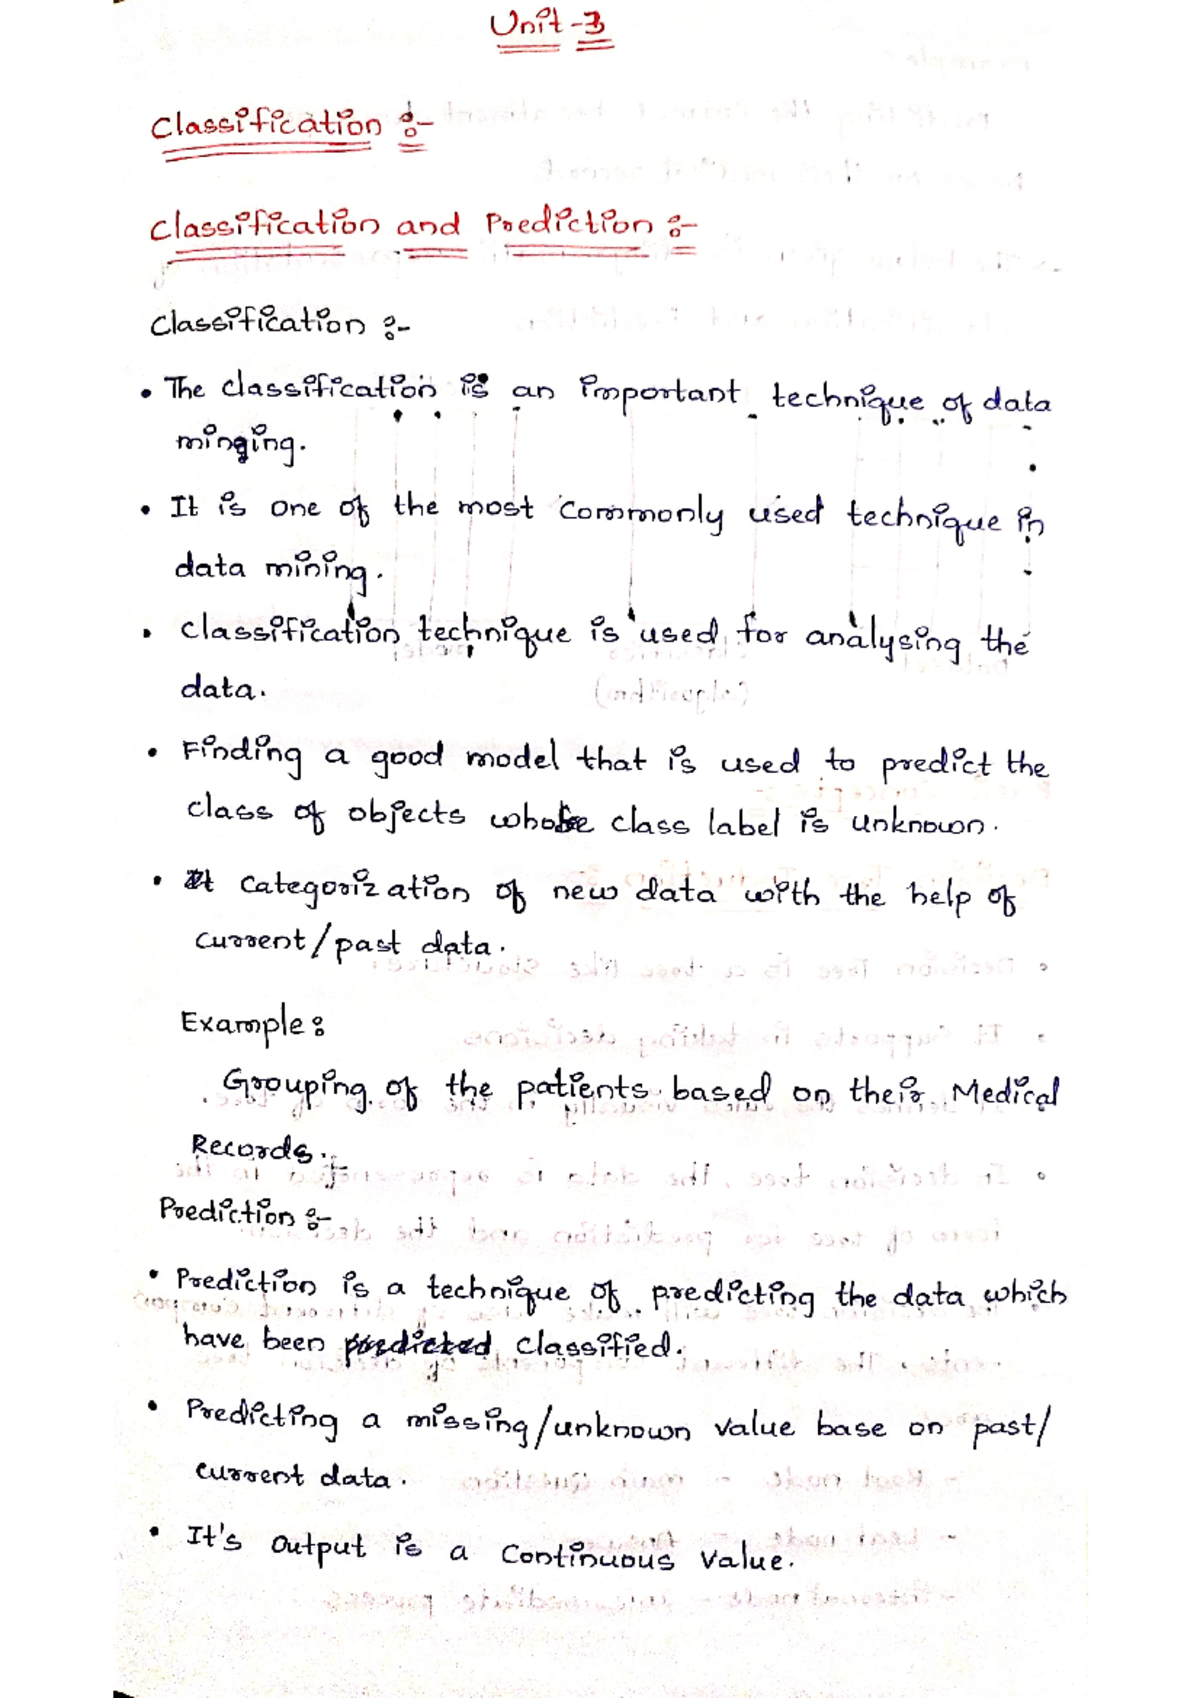 Unit-3
Classification :-
Classification and Prediction :-
Classification :-
• The classification is an important technique of data
minging.
• It is one of the most commonly used technique in
data mining.
• Classification technique is used for analysing the
data.
• Finding a good model that is used to predict the
class of objects whose class label is unknown.
• It categorization of new data with the help of
current/past data.
Example :
Grouping of the patients based on their Medical
Records.
Prediction :-
• Prediction is a technique of predicting the data which
have been predicted classified.
• Predicting a missing/unknown value base on past/
current data.
• It's output is a continuous value.